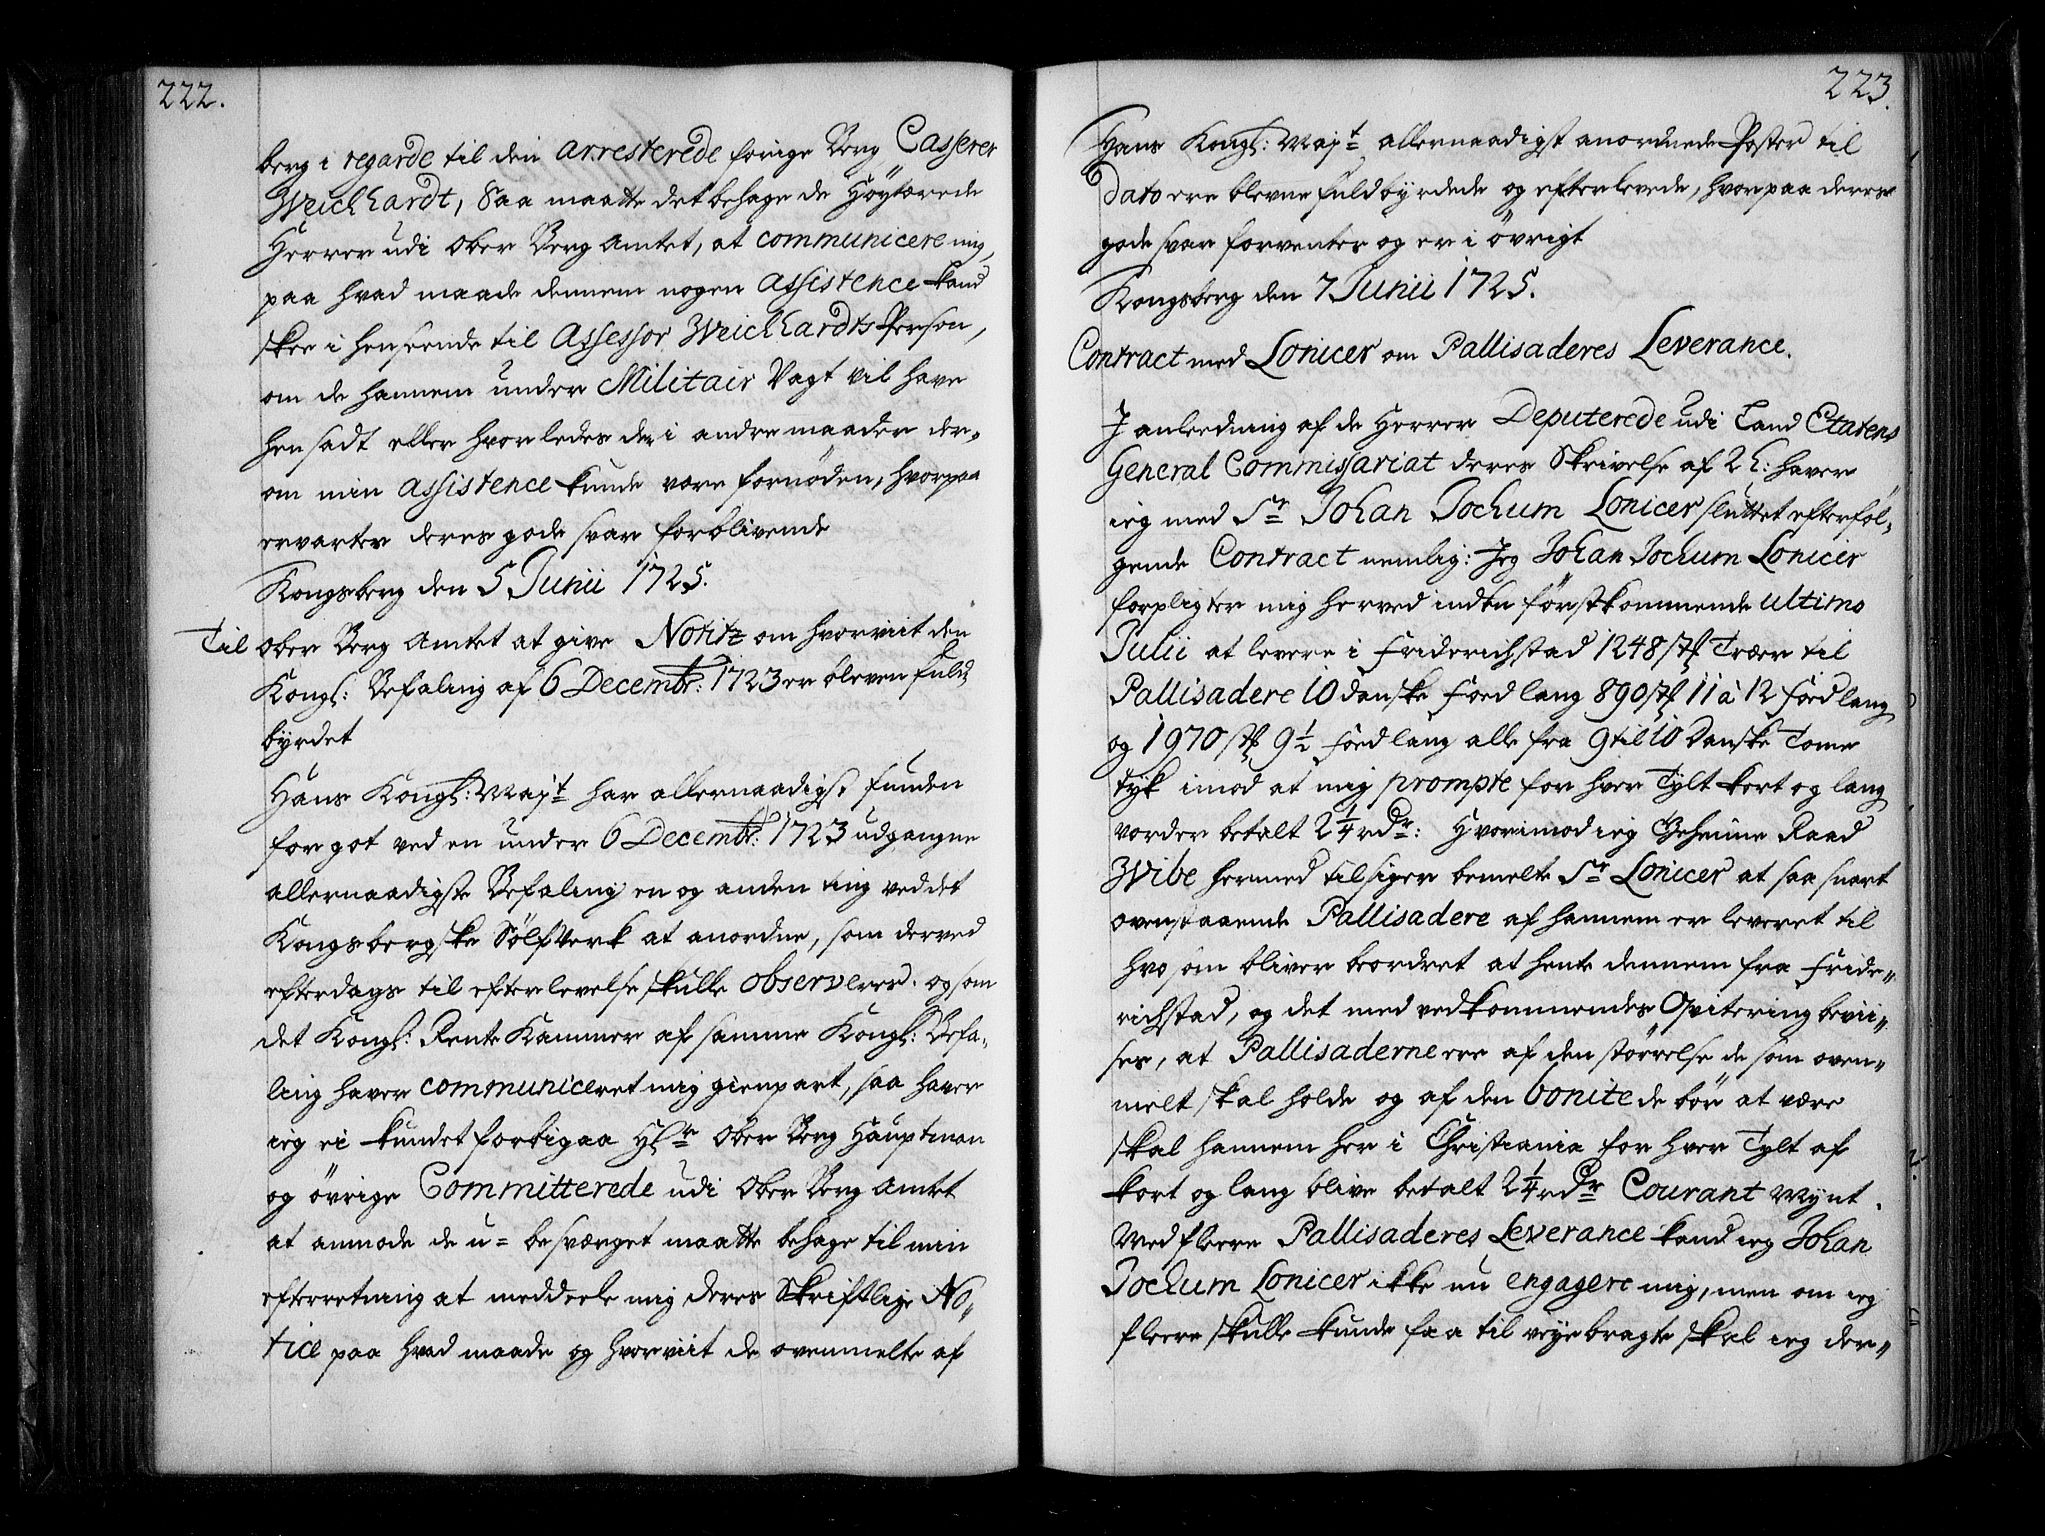 222.
berg i regarde til den arresterede forige Berg Casserer
Weichhardt, Saa maatte det behage de Höytærede
Herrer udi Ober Berg Amtet, at communicere mig,
paa hvad maade dennem nogen assistence kand
skee i henseende til Assessor Weichhardts Person,
om de hannem under Militair Vagt vil have
hensadt eller hvorledes der i andre maader der-
om min assistence kunde være fornöden, hvorpaa
ervarter deres gode svar forblivende
Kongsberg den 5 Junii 1725.
Til Ober Berg Amtet at give Notitz om hvorviit den
Kongl: Befaling af 6 Decembr: 1723 er bleven fuld
byrdet
Hans Kongl: Mayt har allernaadigst funden
for got ved en under 6 Decembr: 1723 udgangne
allernaadigste Befaling en og anden ting ved det
Kongsbergske Sölfverk at anordne, som derved
efterdags til efterlevelse skulle observeres. og som
det Kongl: Rente Kammer af samme Kongl: Befa-
ling haver communiceret mig gienpart, saa haver
ieg ei kundet forbigaa Hr Ober Berg Hauptman
og övrige Committerede udi Ober Berg Amtet
at anmode de u-besværget maatte behage til min
efterretning at meddeele mig deres Skriftlige No-
tice paa hvad maade og hvorviit de ovenmelte af
223.
Hans Kongl: Mayt allernaadigst anordnede Poster til
Dato ere blevne fuldbyrdede og efterlevede, hvorpaa deres
gode svar forventer og er i övrigt
Kongsberg den 7 Junii 1725.
Contract med Lonicer om Pallisaders Leverance.
J anledning af de Herrer Deputerede udi Land Etatens
General Commissariat deres Skrivelse af 2 h: haver
ieg med Sr Johan Jochum Lonicer sluttet efterföl-
gende Contract nemlig: Jeg Johan Jochum Lonicer
forpligter mig herved inden förstkommende ultimo
Julii at levere i Friderichstad 1248 stk Træer til
Pallisadere 10 danske Foed lang 890 stk 11 à 12 Foed lang
og 1970 stk 9 1/2 Foed lang alle fra 9 til 10 Danske Tomme
tyk imod at mig prompte for hver Tylt kort og lang
vorder betalt 2 1/4 rdr: Hvorimod ieg Geheime Raad
Wibe hermed tilsiger bemelte Sr Lonicer at saa snart
ovenstaaende Pallisadere af hannem er leveret til
hvo som bliver beordret at hente dennem fra Fride-
richstad, og det med vedkommendes Qvitering bevii-
ses, at Pallisaderne ere af den störrelse de som oven-
melt skal holde og af den bonite de bör at være
skal hannem her i Christiania for hver Tylt af
kort og lang blive betalt 2 1/4 rdr Courant Mynt.
Med fleere Pallisaders Leverance kand ieg Johan
Jochum Lonicer ikke nu engagere mig, men om ieg
fleere skulle kunde faa til veye bragte skal ieg der-